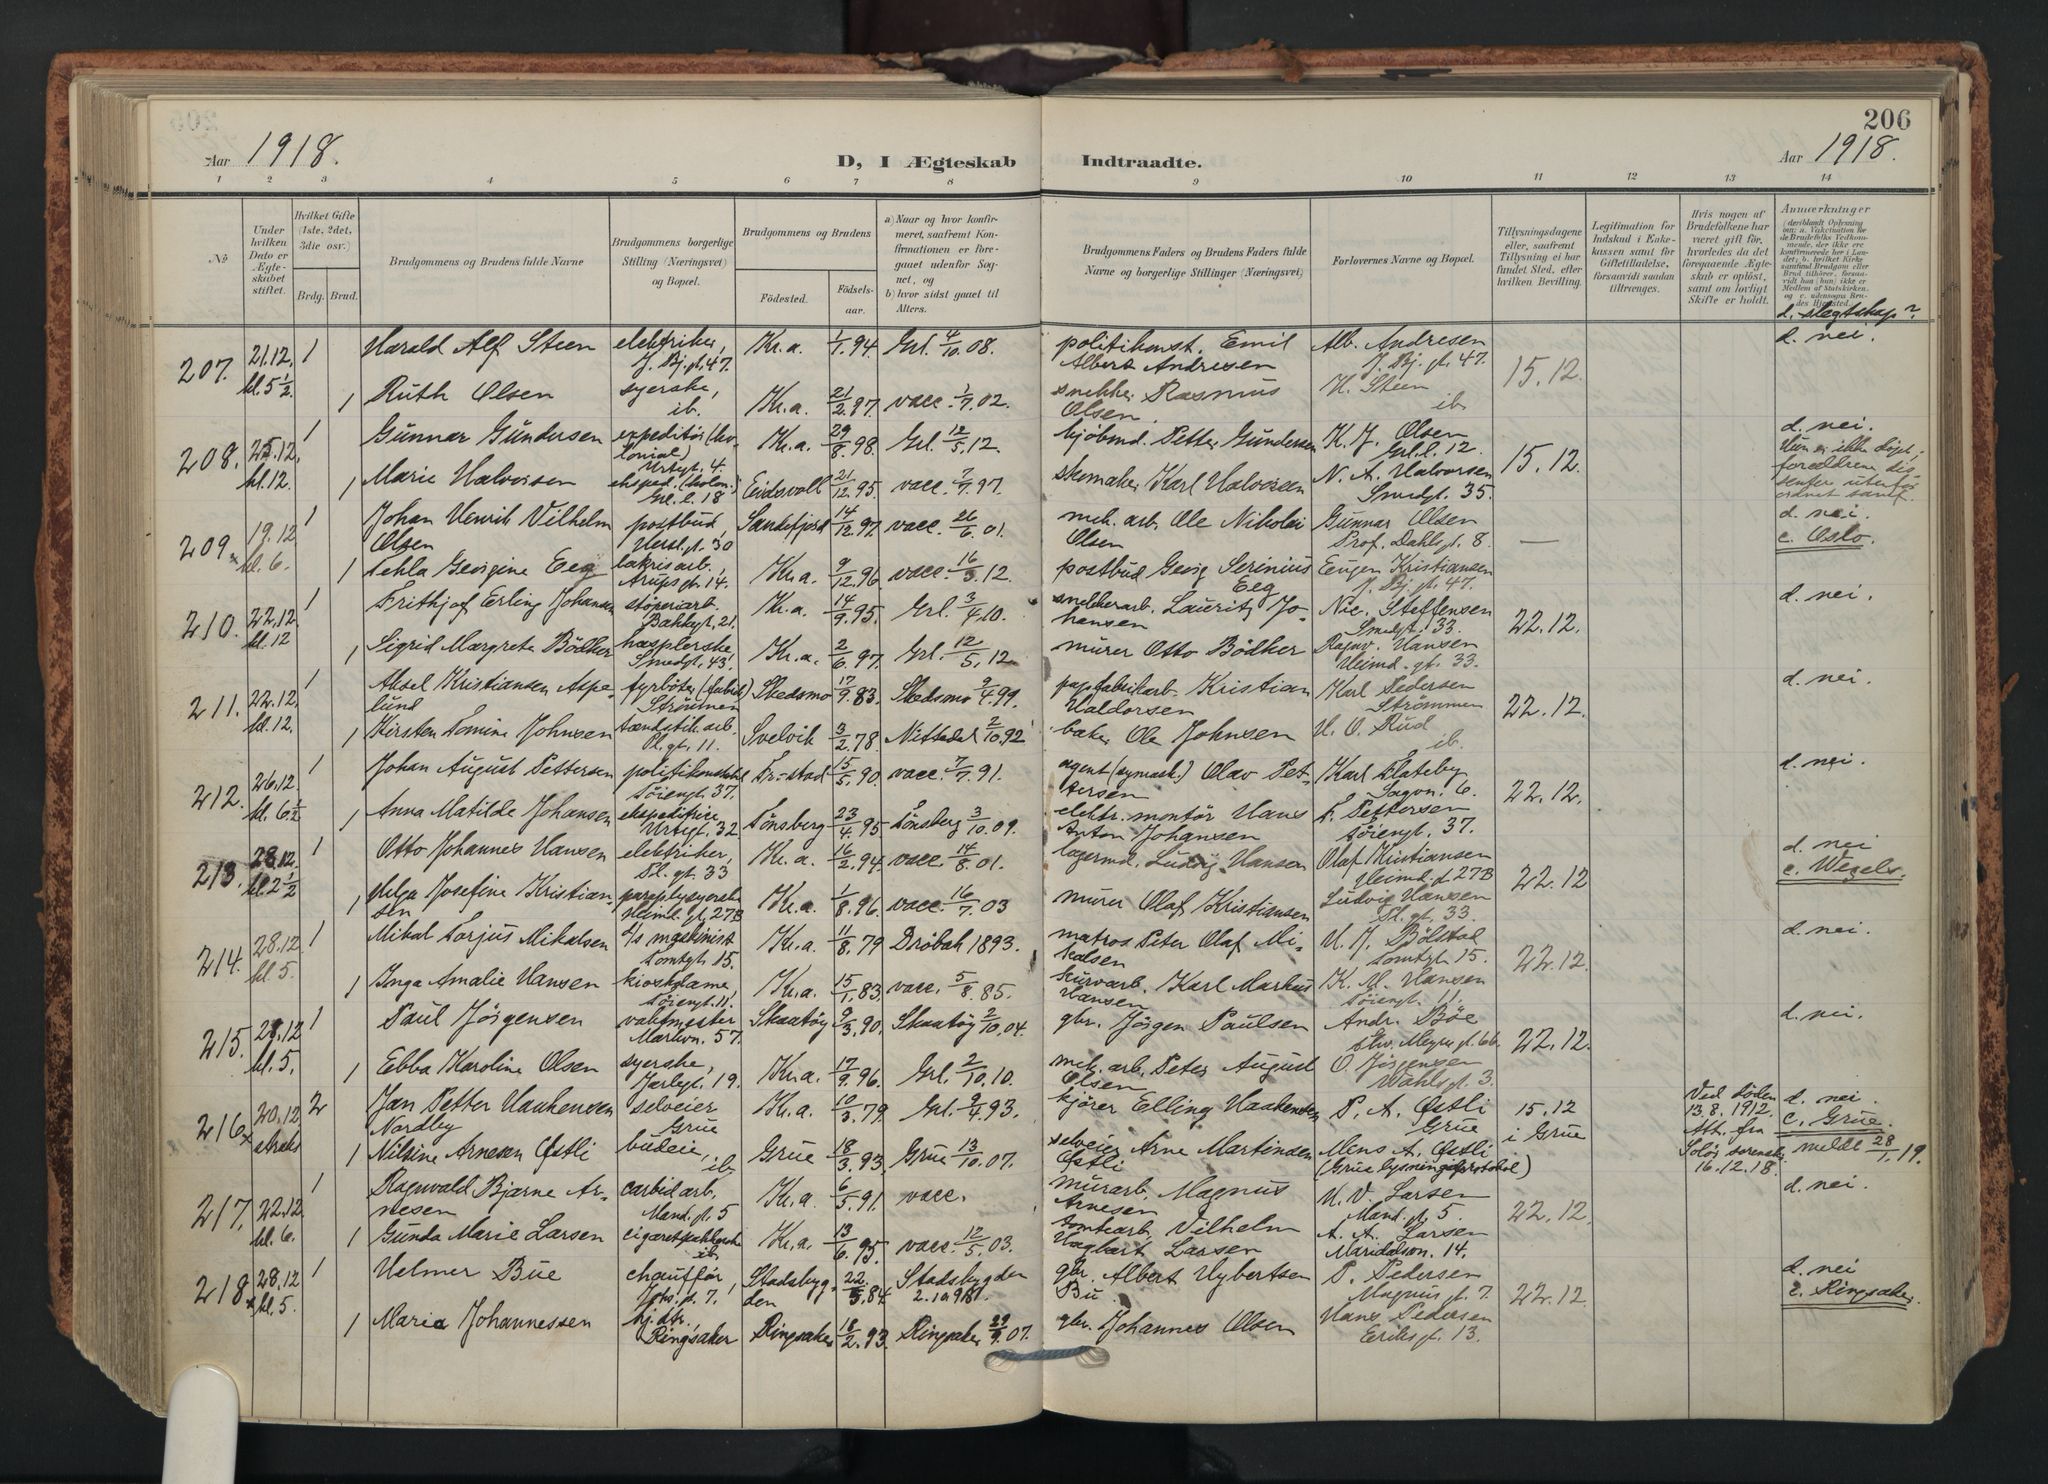 206
Aar 1918.
D, I Ægteskab Indtraadte.
Aar 1918.
1 2 3 4 5 6 7 8 9 10 11 12 13 14
No
Under hvilken Dato er Ægteskabet stiftet.
Hvilket Gifte (1ste, 2det, 3die osv.)
Brdg. Brud.
Brudgommens og Brudens fulde Navne
Brudgommens borgerlige Stilling (Næringsvei) og Bopæl.
Brudgommens og Brudens
Fødested.
Fødselsaar.
a) Naar og hvor konfirmeret, saafremt Konfirmationen er foregaaet udenfor Sognet, og
b) hvor sidst gaaet til Alters.
Brudgommens Faders og Brudens Faders fulde Navne og borgerlige Stillinger (Næringsvei)
Forlovernes Navne og Bopæl.
Tillysningsdagene eller, saafremt Tillysning ei har fundet Sted, efter hvilken Bevilling.
Legitimation for Indskud i Enkekassen samt for Giftetilladelse, forsaavidt saadan tiltrænges.
Hvis nogen af Brudefolkene har været gift før, hvorledes da det foregaaende Ægteskab er opløst, samt om lovligt Skifte er holdt.
Anmærkninger
d. slegtskap?
207. 21.12. kl. 5 1/2 1 Harald Alf Steen elektriker, J. Bj. gt. 47. Kr.a. 1/7.94. Grl. 4/10.08. politikonst. Emil Albert Andresen Alb. Andresen J. Bj. gt. 47. 15.12. d. nei.
1 Ruth Olsen syerske, ib. Kr.a. 21/2.97. vacc. 1/7.02. snekker Rasmus Olsen H. Steen ib.
208. 25.12. kl. 12. 1 Gunnar Gundersen expeditør (kolonial) Urtegt. 4. Kr.a. 29/8.98. Grl. 12/5.12. kjøbmd. Petter Gundersen K. J. Olsen Grl. l. 12. 15.12. d. nei. Hun er ikke døpt; forældrene
1 Marie Halvorsen eksped. (kolon.) Grl. l. 18 Eidsvoll 21/12.95. vacc. 7/7.97. skomaker Karl Halvorsen N. A. Halvorsen Smedgt. 35.
209. 19.12 kl. 6. 1 Johan Henrik Vilhelm Olsen postbud Hersl. gt. 30 Sandefjord 14/12.97. vacc. 26/6.01. mek. arb. Ole Nikolai Olsen Gunnar Olsen Prof. Dahls gt. 8. — d. nei. c. Oslo.
1 Tekla Georgine Eeg lakrisarb. Arups gt. 14. Kr.a. 9/12.96. vacc. 16/3.12. postbud Georg Serinius Eeg Eugen Kristiansen J. Bj. gt. 47.
210. 22.12. kl. 12 1 Frithjof Erling Johansen støperiarb. Bakkegt. 21. Kr.a. 14/9.95. Grl. 3/4.10. snekkerarb. Lauritz Johansen Nic. Steffensen Smedgt. 33. 22.12. d. nei.
1 Sigrid Margrete Bödker hæsplerske Smedgt. 43. Kr.a. 2/6.97. Grl. 12/5.12. murer Otto Bödker Ragnv. Hansen Heimd. gt. 33.
211. 22.12. kl. 12. 1 Aksel Kristiansen Aspelund fyrbøter (fabrik) Strømmen Skedsmo 17/9.83. Skedsmo 9/4.99. papfabrikarb. Kristian Haldorsen Karl Pedersen Strømmen 22.12. d. nei.
1 Kirsten Tomine Johnsen tændstik. arb. Pl. gt. 11. Svelvik 3/2.78. Nittedal 2/10.92 baker Ole Johnsen H. O. Rud ib.
212. 26.12. kl. 6 1/2 1 Johan August Pettersen politikonstabel Tøiengt. 37. Fr.-stad 15/5.90. vacc. 7/7.91. agent (symask.) Olav Pettersen Karl Flateby Sagvn. 6. 22.12. d. nei.
1 Anna Matilde Johansen ekspeditrice Urtegt. 32 Tönsberg 23/4.95. Tönsberg 3/10.09. elektr. montör Hans Anton Johansen F. Pettersen Tøiengt. 37.
213. 28.12. kl. 2 1/2 1 Otto Johannes Hansen elektriker, Sl. gt. 33 Kr.a. 16/2.94. vacc. 14/8.01. lagermd. Ludvig Hansen Olaf Kristiansen Heimd. gt. 27B 22.12 d. nei c. Wexels.
1 Helga Josefine Kristiansen paraplysyerske Heimd. gt. 27B Kr.a. 1/8.96. vacc. 16/7.03 murer Olaf Kristiansen Ludvig Hansen Sl. gt. 33.
214. 28.12 kl. 5. 1 Mikal Torjus Mikalsen d/s maskinist Tomtegt. 15. Kr.a. 11/8.79 Drøbak 1893. matros Peter Olaf Mikalsen H. J. Bølstad Tomtegt. 15. 22.12. d. nei.
1 Inga Amalie Hansen kioskdame, Tøiengt. 11. Kr.a. 15/1.83. vacc. 5/8.85. kurvarb. Karl Markus Hansen K. M. Hansen Tøiengt. 11.
215. 28.12 kl. 5. 1 Paul Jörgensen vaktmester Markvn. 57. Skaatøy 9/3.90. Skaatøy 2/10.04. gbr. Jörgen Paulsen Andr. Bøe Thv. Meyers gt. 66. 22.12. d. nei.
1 Ebba Karoline Olsen syerske, Jarlegt. 19. Kr.a. 17/9.96. Grl. 2/10.10. mek. arb. Peter August Olsen O. Jørgensen Wahls gt. 3.
216. 20.12 straks 2 Jan Petter Haakensen Nordby selveier Grue Kr.a. 10/3.79. Grl. 9/4.93. kjører Elling Haakensen P. A. Østli Grue 15.12 i Grue Ved døden 13.8.1912. Att. fra Solør sorenskr. 16.12.18. d. nei. c. Grue. meldt 28/1.19.
1 Nilsine Arnesen Østli budeie, ib. Grue 18/3.93. Grue 13/10.07. selveier Arne Martinsen Østli Mens A. Østli (Grue lysningsprotokol)
217. 22.12. kl. 6. 1 Ragnvald Bjarne Arnesen carbidarb. Mand. gt. 5 Kr.a. 6/5.91. vacc. murarb. Magnus Arnesen H. V. Larsen Mand. gt. 5. 22.12. d. nei.
1 Gunda Marie Larsen cigaretpakkerske ib. Kr.a. 13/6.95. vacc. 12/5.03. tomtearb. Vilhelm Hagbart Larsen A. A. Larsen Maridalsvn. 14.
218. 28.12 kl. 5. 1 Helmer Bue chauffør, Johs. gt. 7. Stadsbygden 22/3.84. Stadsbygden 2.10.98. gbr. Albert Hybertsen Bu. P. Pedersen Magnus gt. 7 22.12. d. nei c. Ringsaker.
1 Maria Johannessen hj. dtr., Ringsaker Ringsaker 18/2.93. Ringsaker 29/9.07. gbr. Johannes Olsen Hans Pedersen Eriks gt. 13.